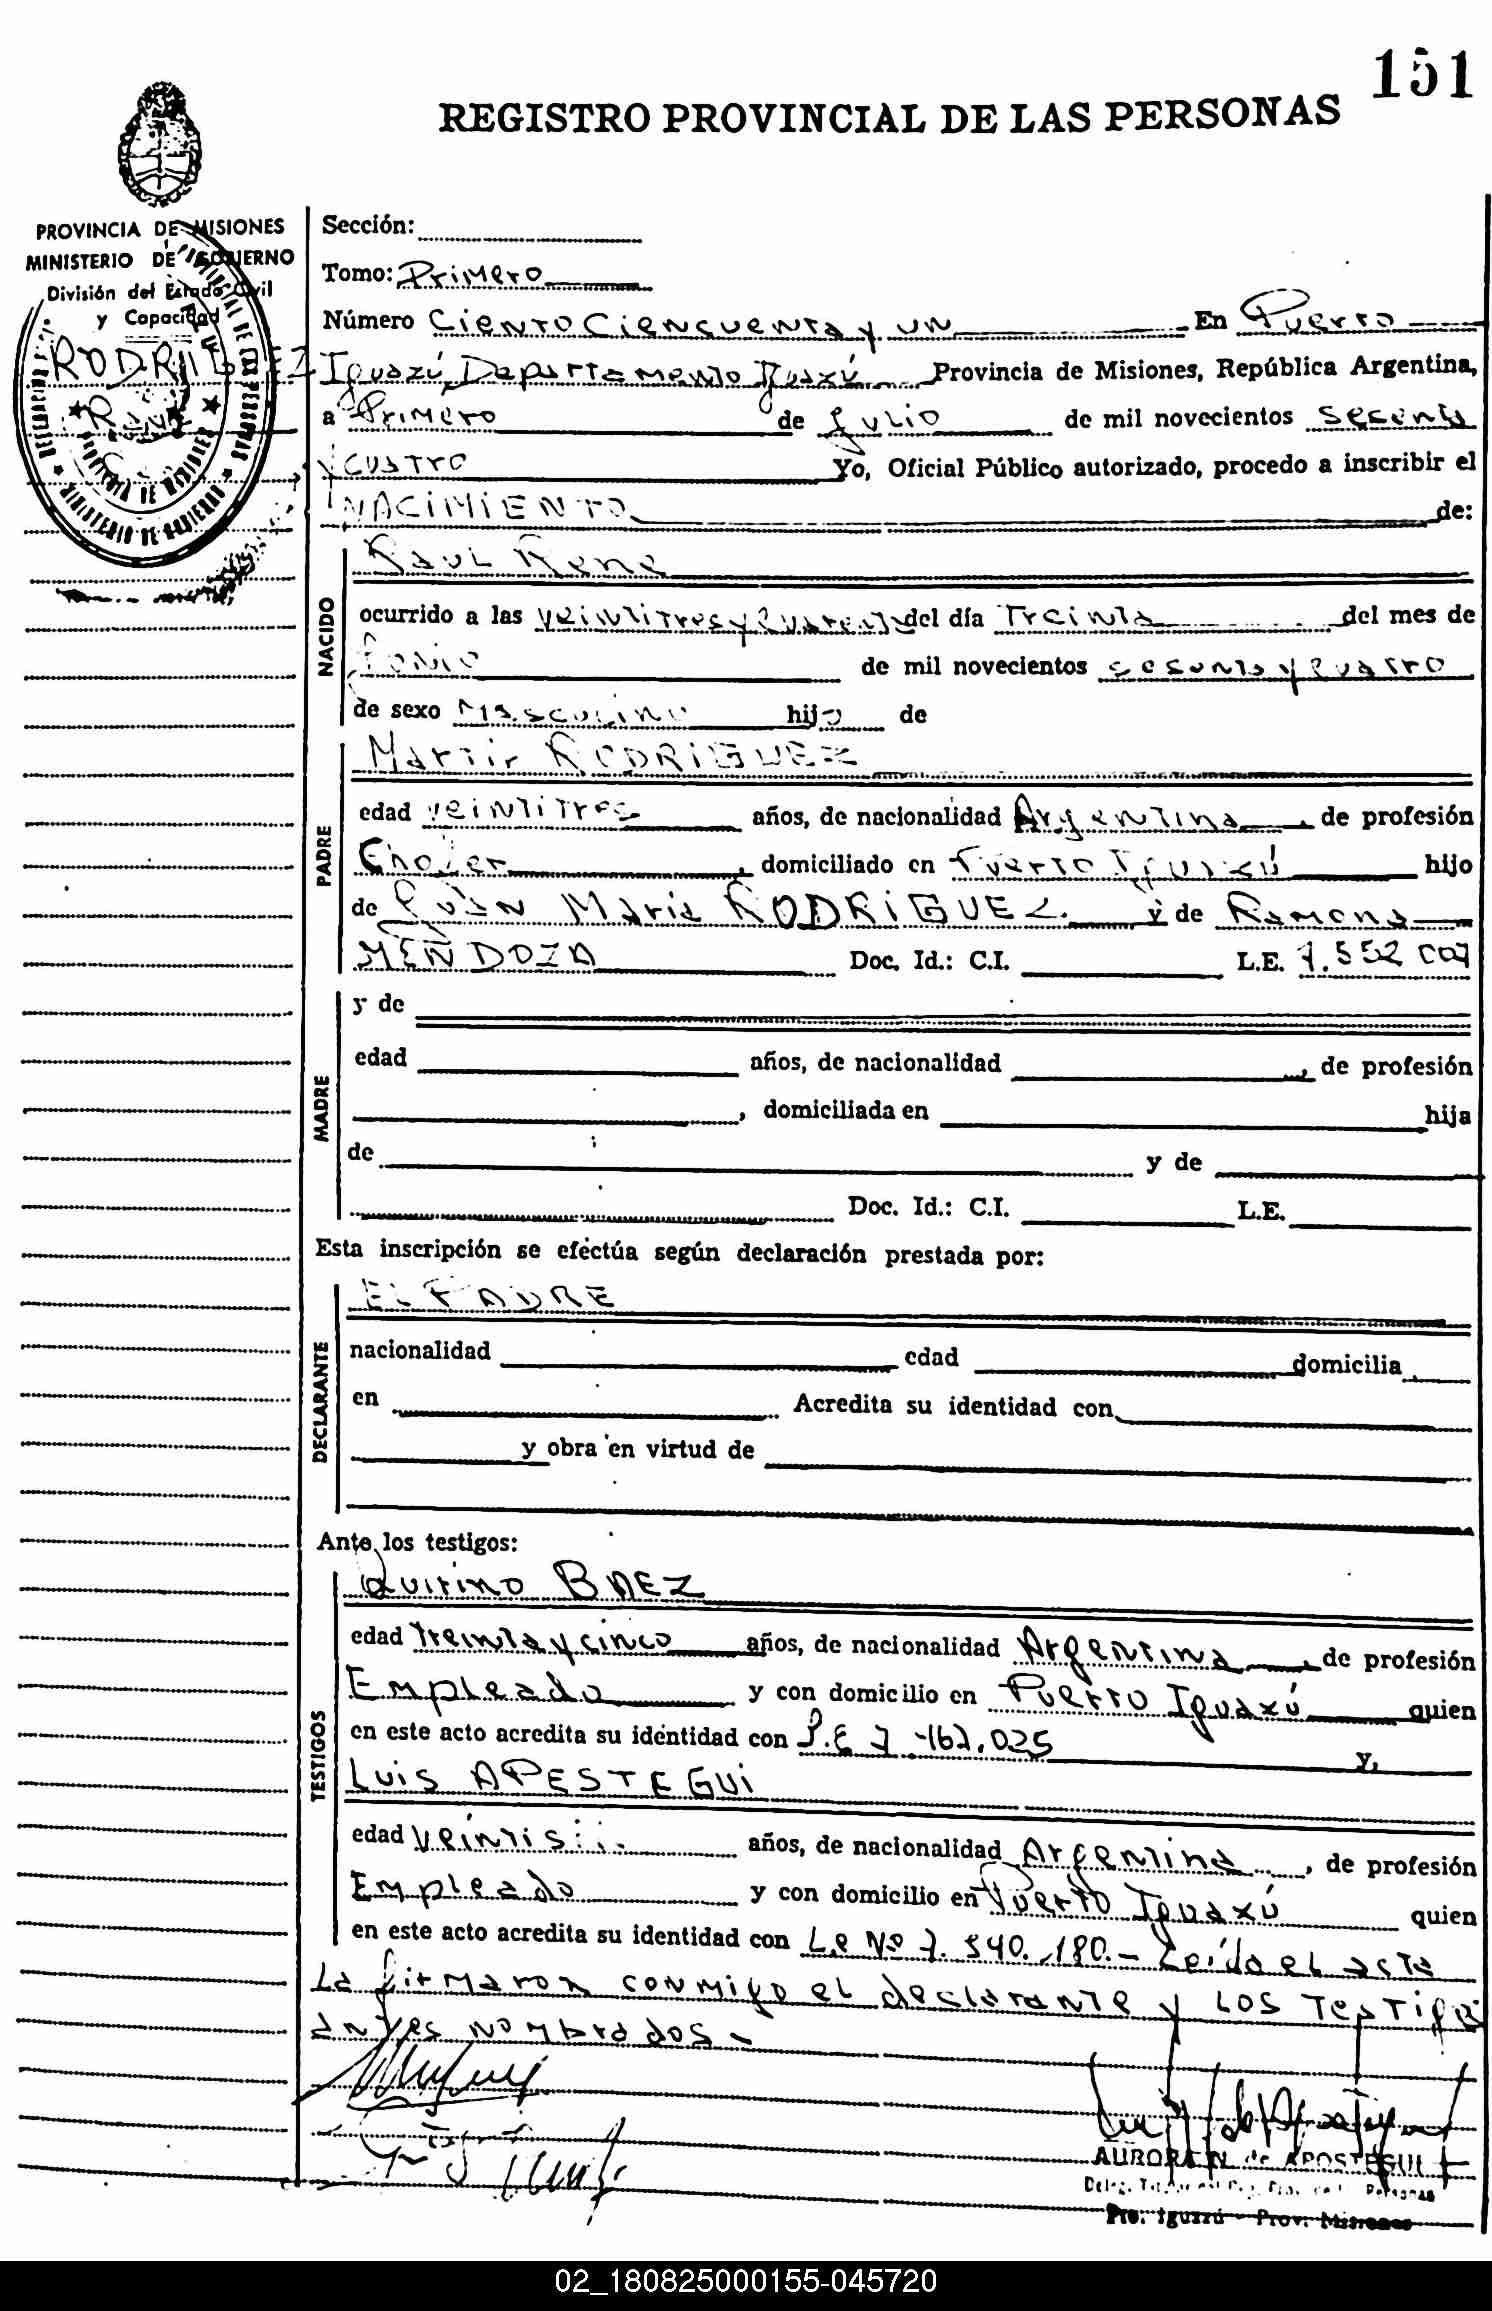 151
REGISTRO PROVINCIAL DE LAS PERSONAS
PROVINCIA DE MISIONES
MINISTERIO DE GOBIERNO
División del Estado Civil
y Capacidad
RODRIGUEZ
Sección:
Tomo: Primero
Número Ciento Ciencuenta y un En Puerto
Iguazú, Departamento Iguazú Provincia de Misiones, República Argentina,
a Primero de Julio de mil novecientos sesenta
y cuatro Yo, Oficial Público autorizado, procedo a inscribir el
NACIMIENTO de:
NACIDO
Raul Rene
ocurrido a las veintitres y cuarenta del día Treinta del mes de
Junio de mil novecientos sesenta y cuatro
de sexo Masculino hijo de
PADRE
Martin RODRIGUEZ
edad veintitres años, de nacionalidad Argentina, de profesión
Chofer, domiciliado en Puerto Iguazú hijo
de Juan Maria RODRIGUEZ. y de Ramona
MENDOZA Doc. Id.: C.I. L.E. 7.552 007
MADRE
y de
edad años, de nacionalidad , de profesión
, domiciliada en hija
de y de
Doc. Id.: C.I. L.E.
Esta inscripción se efectúa según declaración prestada por:
DECLARANTE
EL PADRE
nacionalidad edad domicilia
en Acredita su identidad con
y obra en virtud de
Ante los testigos:
TESTIGOS
Quirino BAEZ
edad treinta y cinco años, de nacionalidad Argentina, de profesión
Empleado y con domicilio en Puerto Iguazú quien
en este acto acredita su identidad con y,
Luis APESTEGUI
edad años, de nacionalidad Argentina, de profesión
Empleado y con domicilio en Puerto Iguazú quien
en este acto acredita su identidad con L.e Nº 7.540.180.- Leída el acta
La firmaron conmigo el declarante y los testigos
antes nombrados-
AURORA N. de APOSTEGUI
Pto. Iguazú - Prov. Misiones
02_180825000155-045720